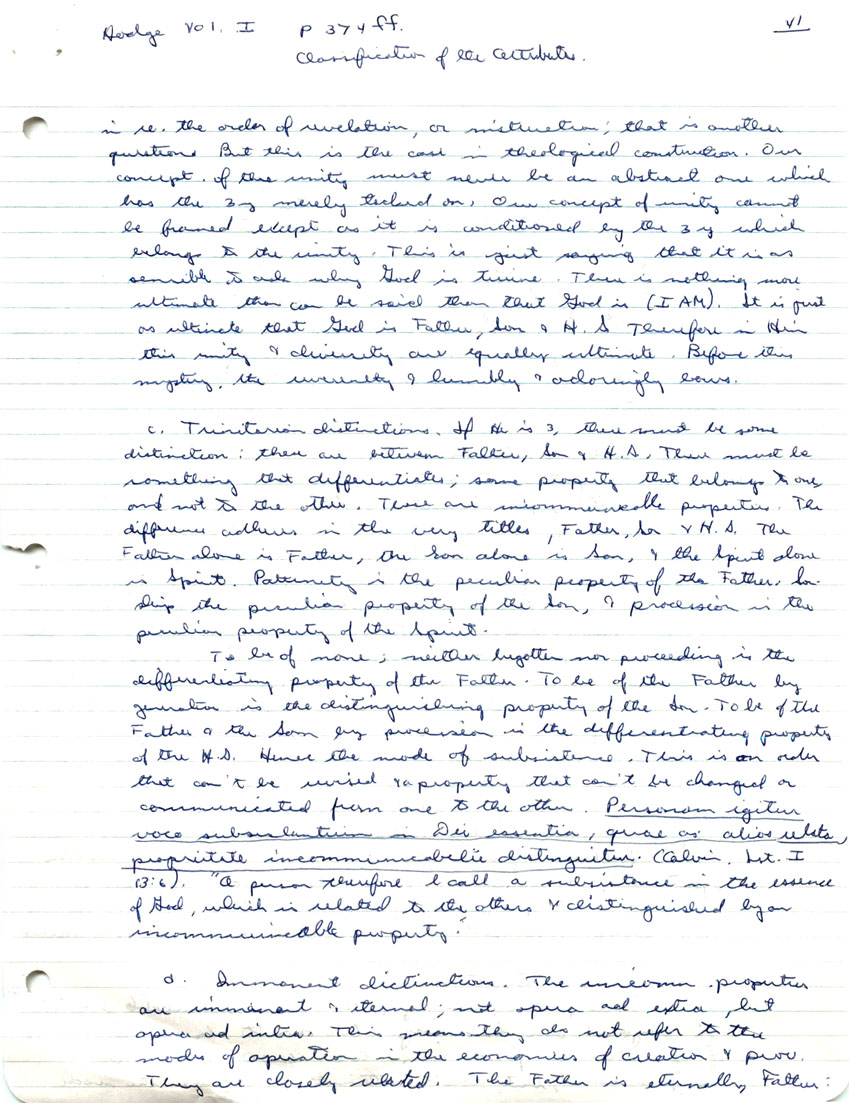 Hodge Vol. I P 374 ff. VI
Classification of the Attributes.
in re. the order of revelation, or instruction; that is another
question. But this is the case in theological construction. Our
concept of the unity must never be an abstract one which
has the 3 y merely tacked on. Our concept of unity cannot
be framed except as it is conditioned by the 3 y which
belongs to the unity. This is just saying that it is as
sensible to ask why God is triune. There is nothing more
ultimate than can be said than that God is (I AM). It is just
as ultimate that God is Father, Son & H. S Therefore in Him
this unity & diversity are equally ultimate. Before this
mystery, the & humbly & adoringly bows.
c. Trinitarian distinctions. If He is 3, there must be some
distinction: there are between Father, Son & H.S. There must be
something that differentiates; some property that belongs to one,
and not to the other. These are incommuncable properties. The
difference adheres in the very titles, Father, Son & H.S. The
Father alone is Father, the Son alone is Son, & the Spirit alone
is Spirit. Paternity is the peculiar property of the Father, Son-
ship the peculiar property of the Son, & procession is the
peculiar property of the Spirit.
To be of none; neither begotten nor proceeding is the
differentiating property of the Father. To be of the Father by
generation is the distinguishing property of the Son. To be of the
Father & the Son by procession is the differentrating property
of the H.S. Hence the mode of subsistence. This is an order
that can't be revised & a property that can't be changed or
communicated from one to the other. Personam igitur
voco subsistantium in Dei essentia, quae as alios relata,
propritate incommunicabelie distinguitur. (Calvin, Inst. I
13:6). "A person therefore I call a subsistance in the essence
of God, which is related to the others & distinguished by an
incommunicable property."
d. Immanent distinctions. The incomm. properties
are immanent & eternal; not opera ad extra, but
opera ad intra. This means they do not refer to the
modes of operation in the economies of creation & prov.
They are closely related. The Father is eternally Father: